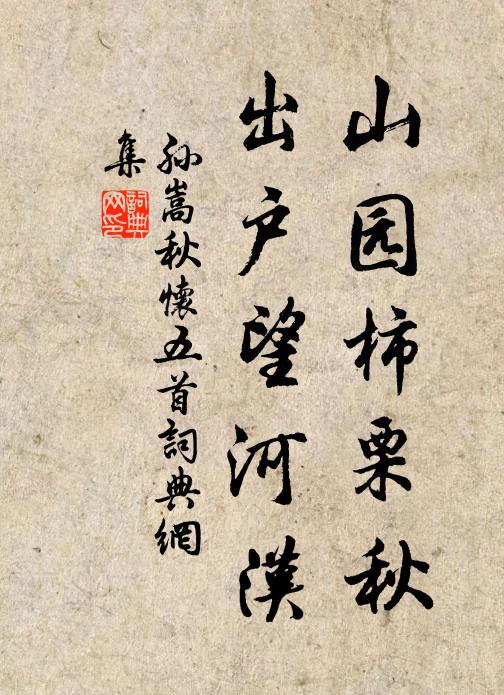 山园柿栗秋
出户望河漢
孙嵩秋懷五首詞典網
集
詞典
网印